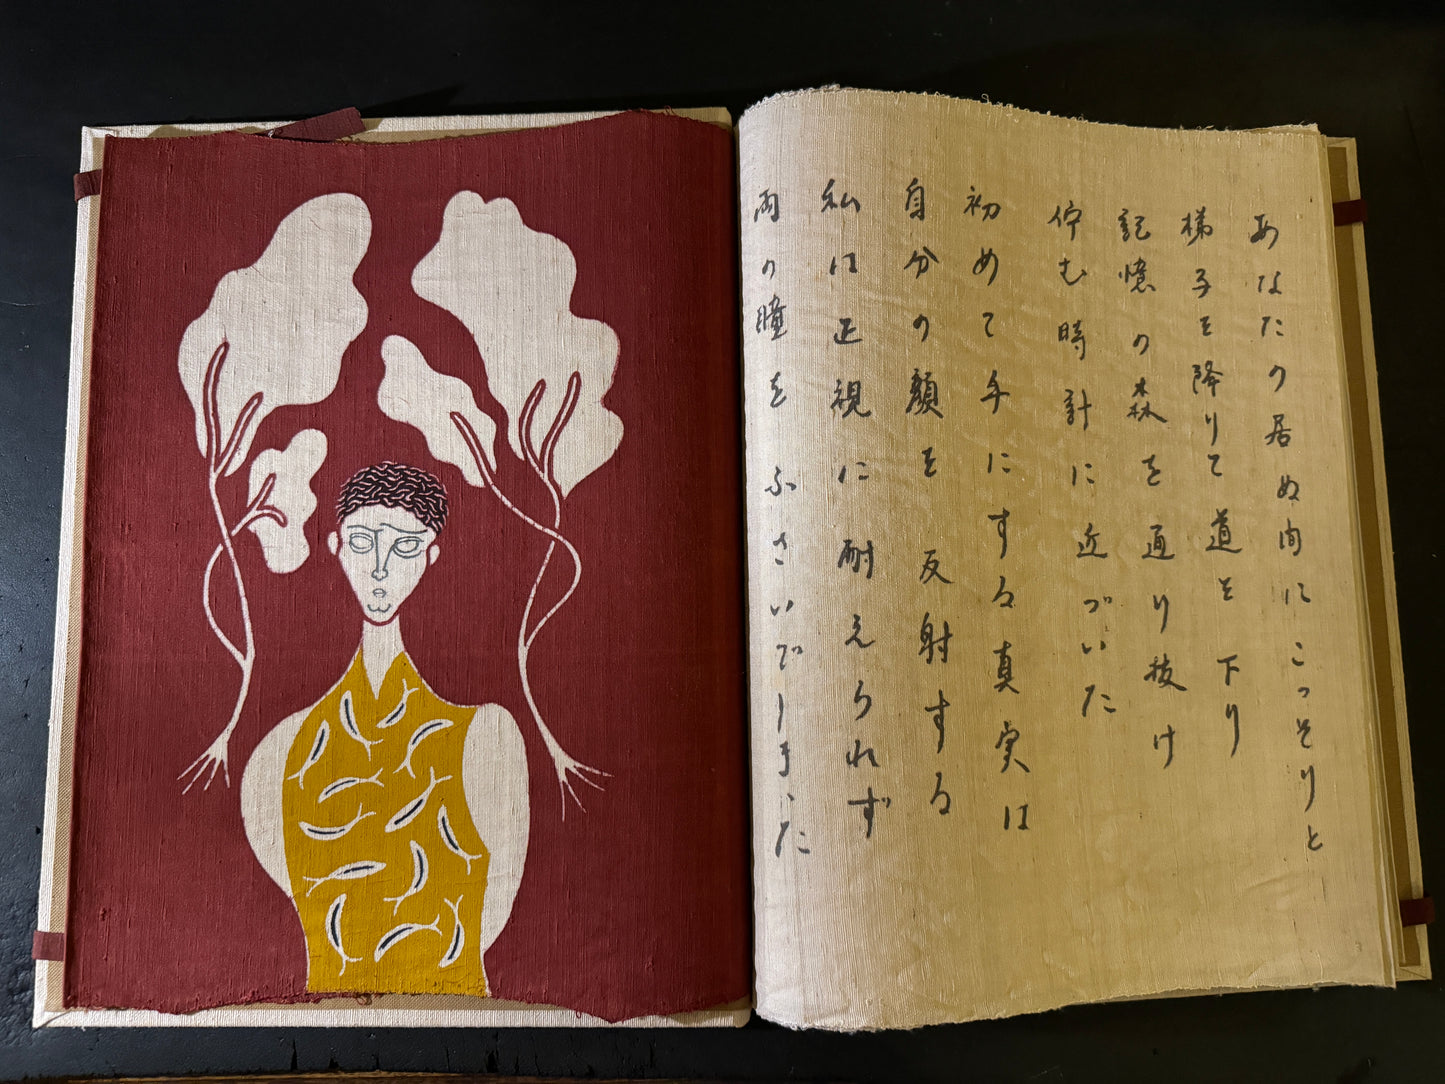 あなたの居ぬ間にこっそりと
梯子を降りて道を下り
記憶の森を通り抜け
佇む時計に近づいた
初めて手にする真実は
自分の顔を反射する
私は正視に耐えられず
両の瞳をふさいでしまった